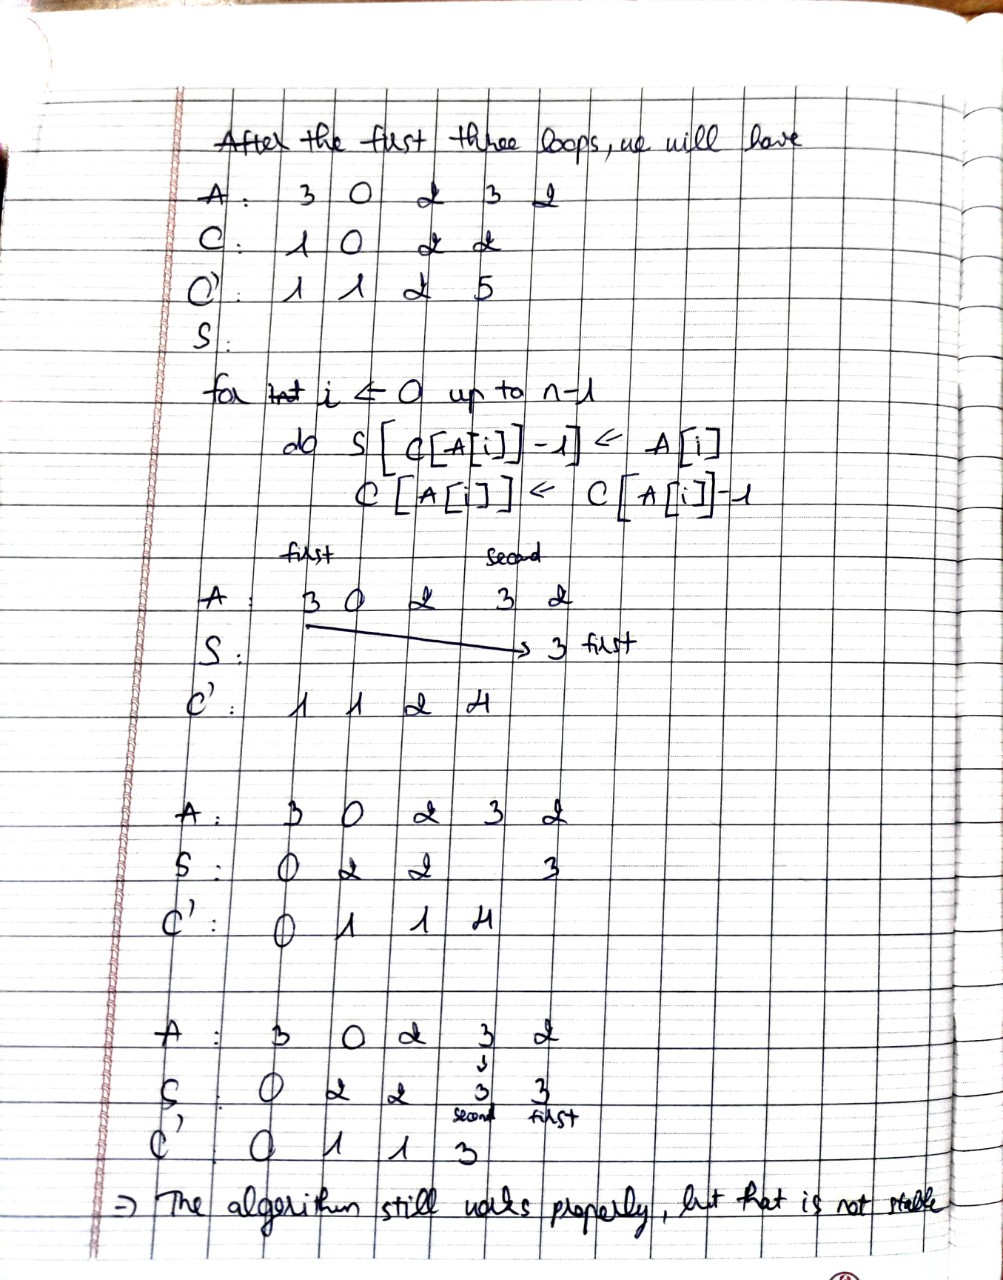 After the first three loops, we will have
A : 3 0 2 3 2
C : 1 0 2 2
C' : 1 1 2 5
S :
for int i ← 0 up to n-1
do S[C[A[i]]-1] ← A[i]
C[A[i]] ← C[A[i]]-1
first second
A : 3 0 2 3 2
S : 3 first
C' : 1 1 2 4
A : 3 0 2 3 2
S : 0 2 2 3
C' : 0 1 1 4
A : 3 0 2 3 2
↓
S : 0 2 2 3 3
second first
C' : 0 1 1 3
⇒ The algorithm still works properly, but that is not stable